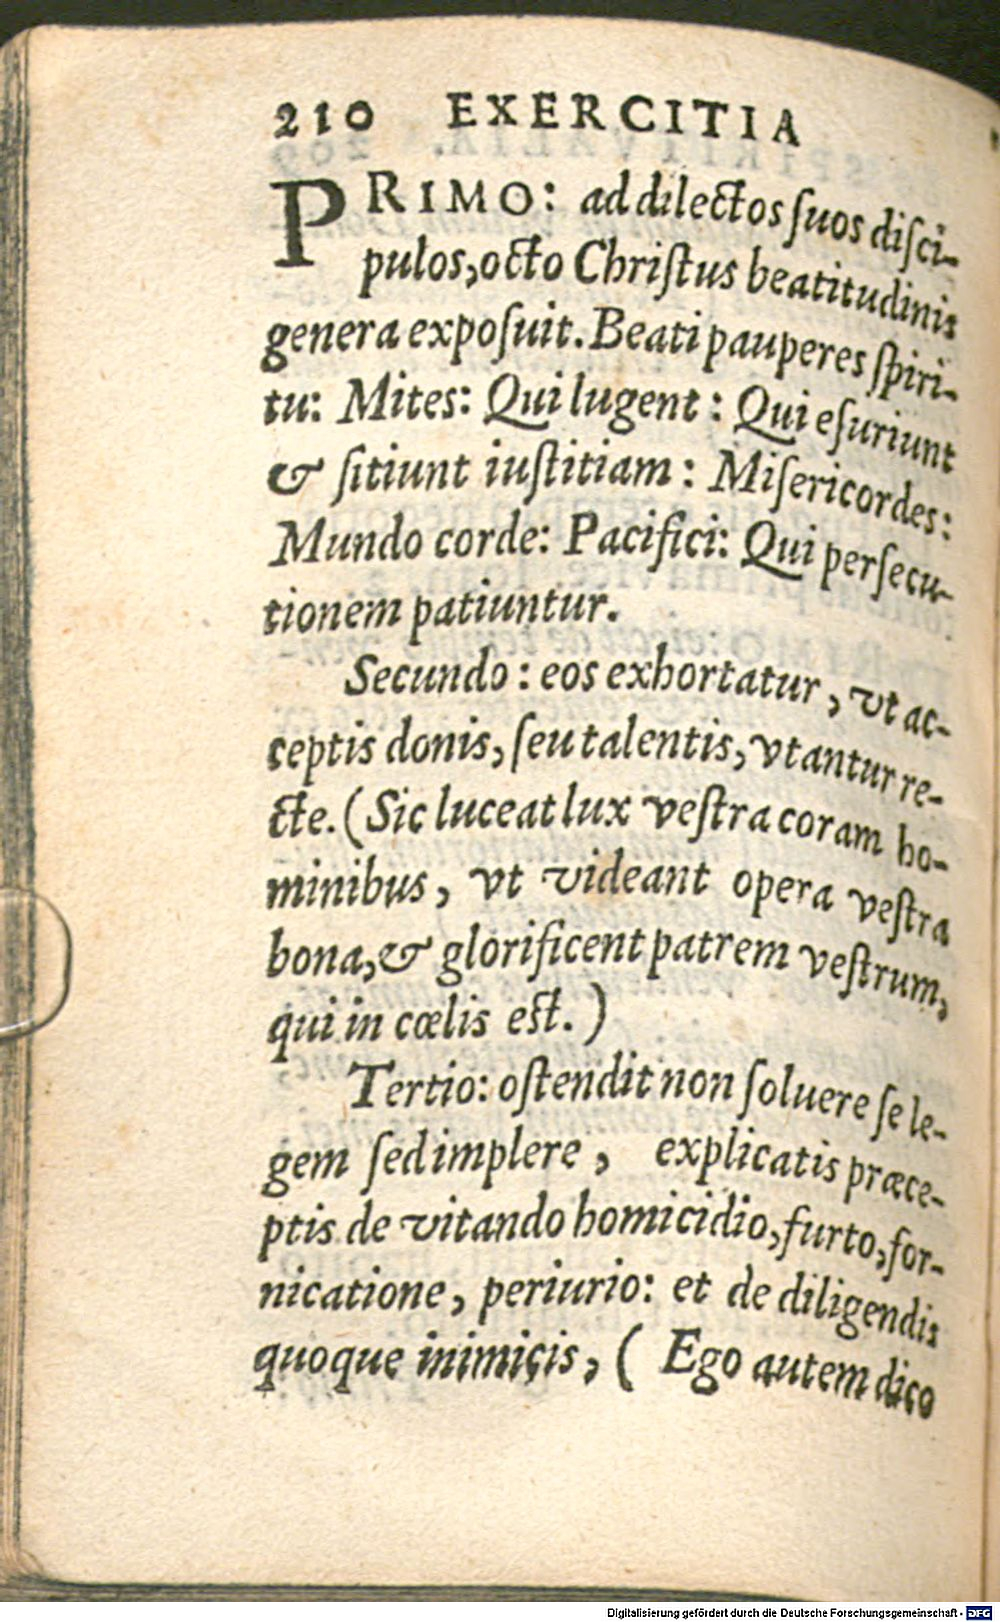 210 EXERCITIA
PRIMO: ad dilectos ſuos diſci-
pulos, octo Chriſtus beatitudinis
genera expoſuit. Beati pauperes ſpiri-
tu: Mites: Qui lugent: Qui eſuriunt
& ſitiunt iuſtitiam: Miſericordes:
Mundo corde: Pacifici: Qui perſecu-
tionem patiuntur.
Secundo: eos exhortatur, vt ac-
ceptis donis, ſeu talentis, vtantur re-
cte. (Sic luceat lux veſtra coram ho-
minibus, vt videant opera veſtra
bona, & glorificent patrem veſtrum,
qui in cœlis eſt.)
Tertio: oſtendit non ſoluere ſe le-
gem ſed implere, explicatis præce-
ptis de vitando homicidio, furto, for-
nicatione, periurio: et de diligendis
quoque inimicis, ( Ego autem dico
Digitalisierung gefördert durch die Deutsche Forschungsgemeinschaft - DFG